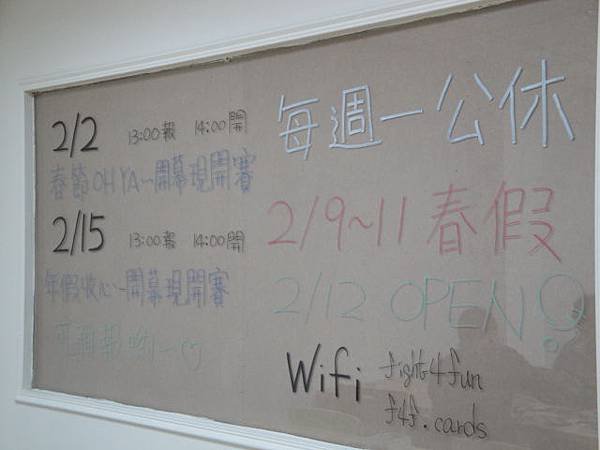 2/2 13:00報 14:00開
春節OH YA~開幕現開賽
2/15 13:00報 14:00開
年假收心~開幕現開賽
可預報喲!~
每週一公休
2/9~11 春假
2/12 OPEN!
Wifi fight4fun
f4f.cards